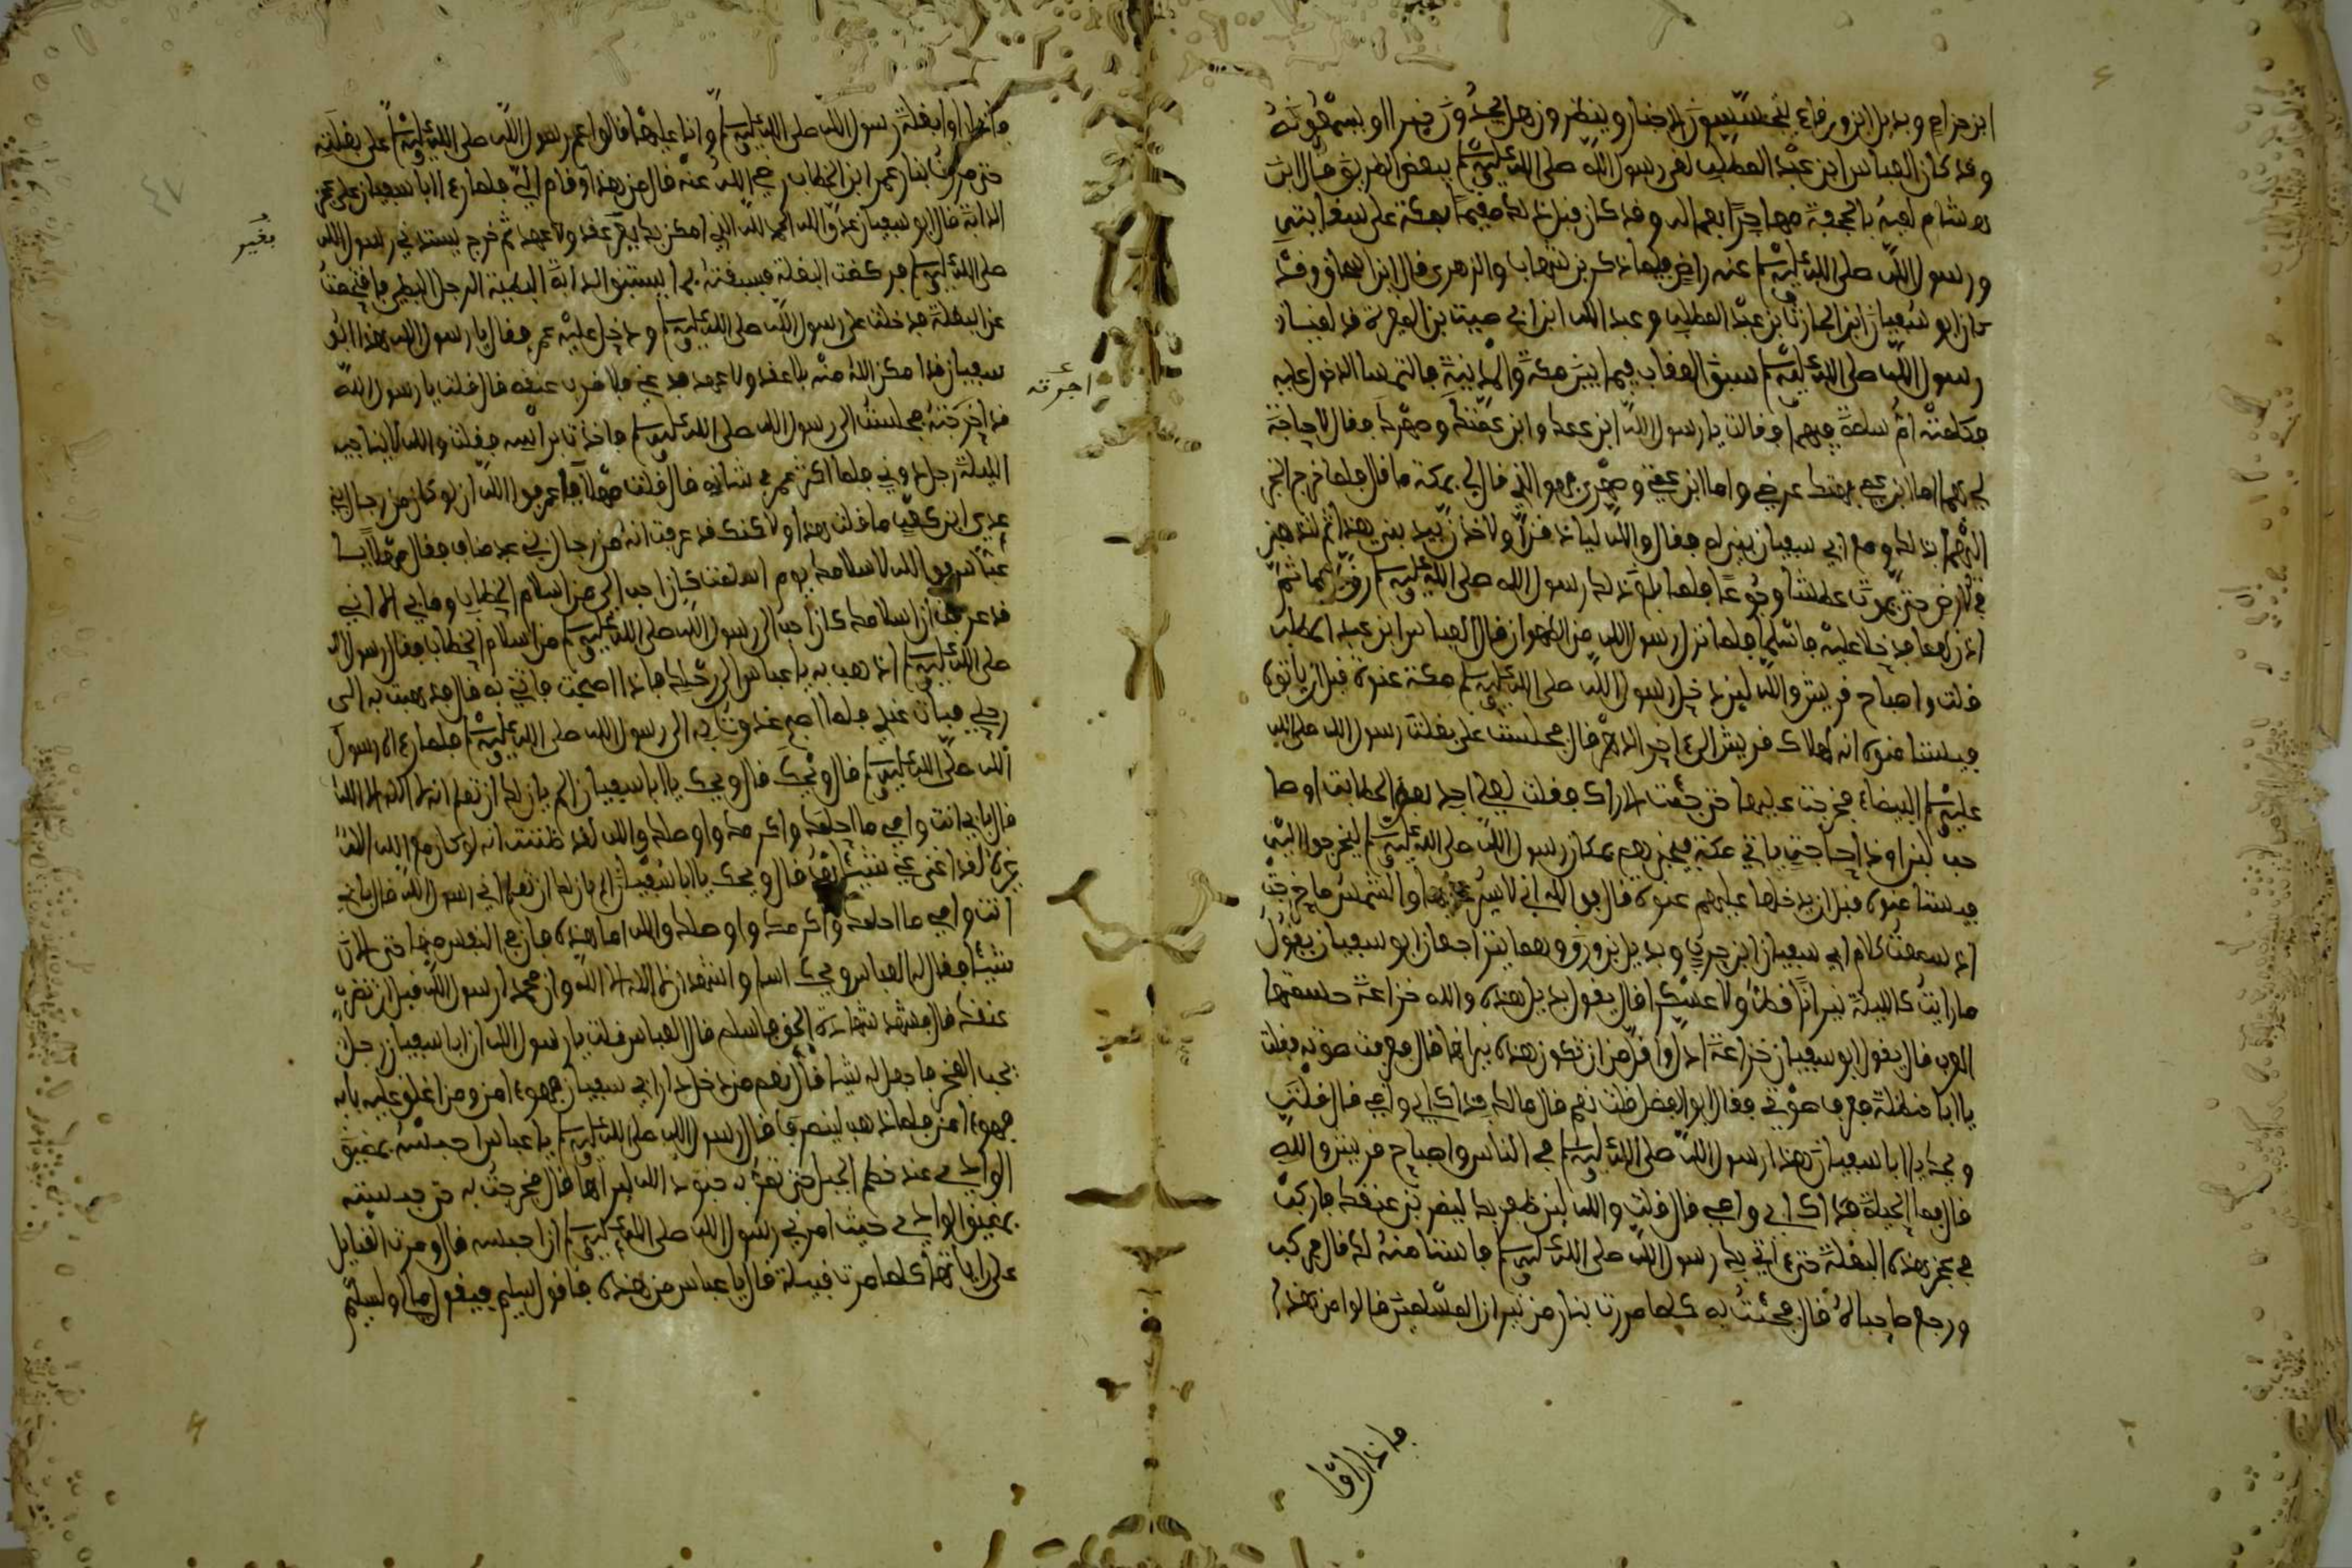 ابن حزام وبديل ابن ورقاء يتحسسون الاخبار وينظرون هل يجدون خبرا او يسمعونه
وقد كان العباس ابن عبد المطلب لقي رسول الله صلى الله عليه وسلم ببعض الطريق قال ابن
هشام لقيه بالجحفة مهاجرا بعياله وقد كان قبل ذلك مقيما بمكة على سقايته
ورسول الله صلى الله عليه وسلم عنه راض فيما ذكر بن شهاب والزهري قال ابن اسحاق وقد
كان ابو سفيان ابن الحارث بن عبد المطلب وعبد الله ابن ابي امية بن المغيرة قد لقيا
رسول الله صلى الله عليه وسلم بنيق العقاب فيما بين مكة والمدينة فالتمسا الدخول عليه
فكلمته ام سلمة فيهما فقالت يا رسول الله ابن عمك وابن عمتك وصهرك فقال لا حاجة
لي بهما اما ابن عمي فهتك عرضي واما ابن عمتي وصهري فهو الذي قال لي بمكة ما قال فلما خرج الخبر
اليهما بذلك ومع ابي سفيان بني له فقال والله لياذنن او لاخذن بيد بني هذا ثم لنذهبن
في الارض حتى نموت عطشا وجوعا فلما بلغ ذلك رسول الله صلى الله عليه وسلم رق لهما ثم
اذن لهما فدخلا عليه فاسلما فلما نزل رسول الله مر الظهران قال العباس ابن عبد المطلب
قلت واصباح قريش والله لين دخل رسول الله صلى الله عليه وسلم مكة عنوة قبل ان ياتوه
فيستامنوه انه لهلاك قريش الى ءاخر الدهر قال فجلست على بغلة رسول الله صلى الله
عليه وسلم البيضاء فخرجت عليها حتى جئت الاراك فقلت لعلي اجد بعض الحطابة او صا
حب لبن او ذا حاجة ياتي مكة فيخبرهم بمكان رسول الله صلى الله عليه وسلم ليخرجوا اليه
فيستامنوه قبل ان يدخلها عليهم عنوة قال فوالله اني لاسير عليها والتمس ما خرجت
اذ سمعت كلام ابي سفيان ابن حرب وبديل بن ورقة وهما يتراجعان وابو سفيان يقول
ما رايت كالليلة نيرانا قط ولا عسكرا قال يقول بديل هذه والله خزاعة حمشتها
الحرب قال يقول ابو سفيان خزاعة اذل واقل من ان تكون هذه نيرانها قال فعرفت صوته فقلت
يا ابا حنظلة فعرف صوتي فقال ابو الفضل قلت نعم قال مالك فداك ابي وامي قال قلت
ويحك يا ابا سفيان هذا رسول الله صلى الله عليه وسلم في الناس واصباح قريش والله
قال فما الحيلة فداك ابي وامي قال قلت والله لين ظفر بك ليضربن عنقك فاركب
في عجز هذه البغلة حتى ءاتي بك رسول الله صلى الله عليه وسلم فاستامنه لك قال فركب
ورجع صاحباه قال فجئت به كلما مررت بنار من نيران المسلمين قالوا من هذا
فاذا راوا
فاذا راوا بغلة رسول الله صلى الله عليه وسلم وانا عليها قالوا عم رسول الله صلى الله عليه وسلم على بغلته
حتى مررت بنار عمر ابن الخطاب رضي الله عنه قال من هذا وقام الي فلما رءا ابا سفيان على عجز
الدابة قال ابو سفيان عدو الله الحمد لله الذي امكن بك بغير عقد ولا عهد ثم خرج يشتد نحو رسول الله
بغير
صلى الله عليه وسلم وركضت البغلة فسبقته بما تسبق الدابة البطيئة الرجل البطيء فاقتحمت
عن البغلة فدخلت على رسول الله صلى الله عليه وسلم ودخل عليه عمر فقال يا رسول الله هذا ابو
سفيان قد امكن الله منه بلا عقد ولا عهد فدعني فلاضرب عنقه قال قلت يا رسول الله
قد اجرته فجلست الى رسول الله صلى الله عليه وسلم فاخذت براسه فقلت والله لا يناجيه
اجرته
الليلة رجل دوني فلما اكثر عمر في شانه قال قلت مهلا يا عمر فوالله ان لو كان من رجال بني
عدي ابن كعب ما قلت هذا ولاكنك قد عرفت انه من رجال بني عبد مناف فقال مهلا يا
عباس فوالله لاسلامك يوم اسلمت كان احب الي من اسلام الخطاب وما بي الا اني
قد عرفت ان اسلامك كان احب الى رسول الله صلى الله عليه وسلم من اسلام الخطاب فقال رسول الله
صلى الله عليه وسلم اذهب به يا عباس الى رحلك فاذا اصبحت فاتني به قال فذهبت به الى
رحلي فبات عندي فلما اصبح غدوت به الى رسول الله صلى الله عليه وسلم فلما رءاه رسول
الله صلى الله عليه وسلم قال ويحك قال ويحك يا ابا سفيان الم يان لك ان تعلم انه لا اله الا الله
قال بابي انت وامي ما احلمك واكرمك واوصلك والله لقد ظننت انه لو كان مع الله اله
غيره لقد اغنى عني شيئا بعد قال ويحك يا ابا سفيان الم يان لك ان تعلم اني رسول الله قال بابي
انت وامي ما احلمك واكرمك واوصلك والله اما هذه فان في النفس منها حتى الان
شيئا فقال له العباس ويحك اسلم واشهد ان لا اله الا الله وان محمدا رسول الله قبل ان تضرب
عنقك قال فشهد شهادة الحق فاسلم قال العباس قلت يا رسول الله ان ابا سفيان رجل
يحب الفخر فاجعل له شيئا قال نعم من دخل دار ابي سفيان فهو ءامن ومن اغلق عليه بابه
فهو ءامن فلما ذهب لينصرف قال رسول الله صلى الله عليه وسلم يا عباس احبسه بمضيق
الوادي عند خطم الجبل حتى تمر به جنود الله فيراها قال فخرجت به حتى حبسته
بمضيق الوادي حيث امرني رسول الله صلى الله عليه وسلم ان احبسه قال ومرت القبايل
على راياتها كلما مرت قبيلة قال يا عباس من هذه فاقول سليم فيقول مالي ولسليم